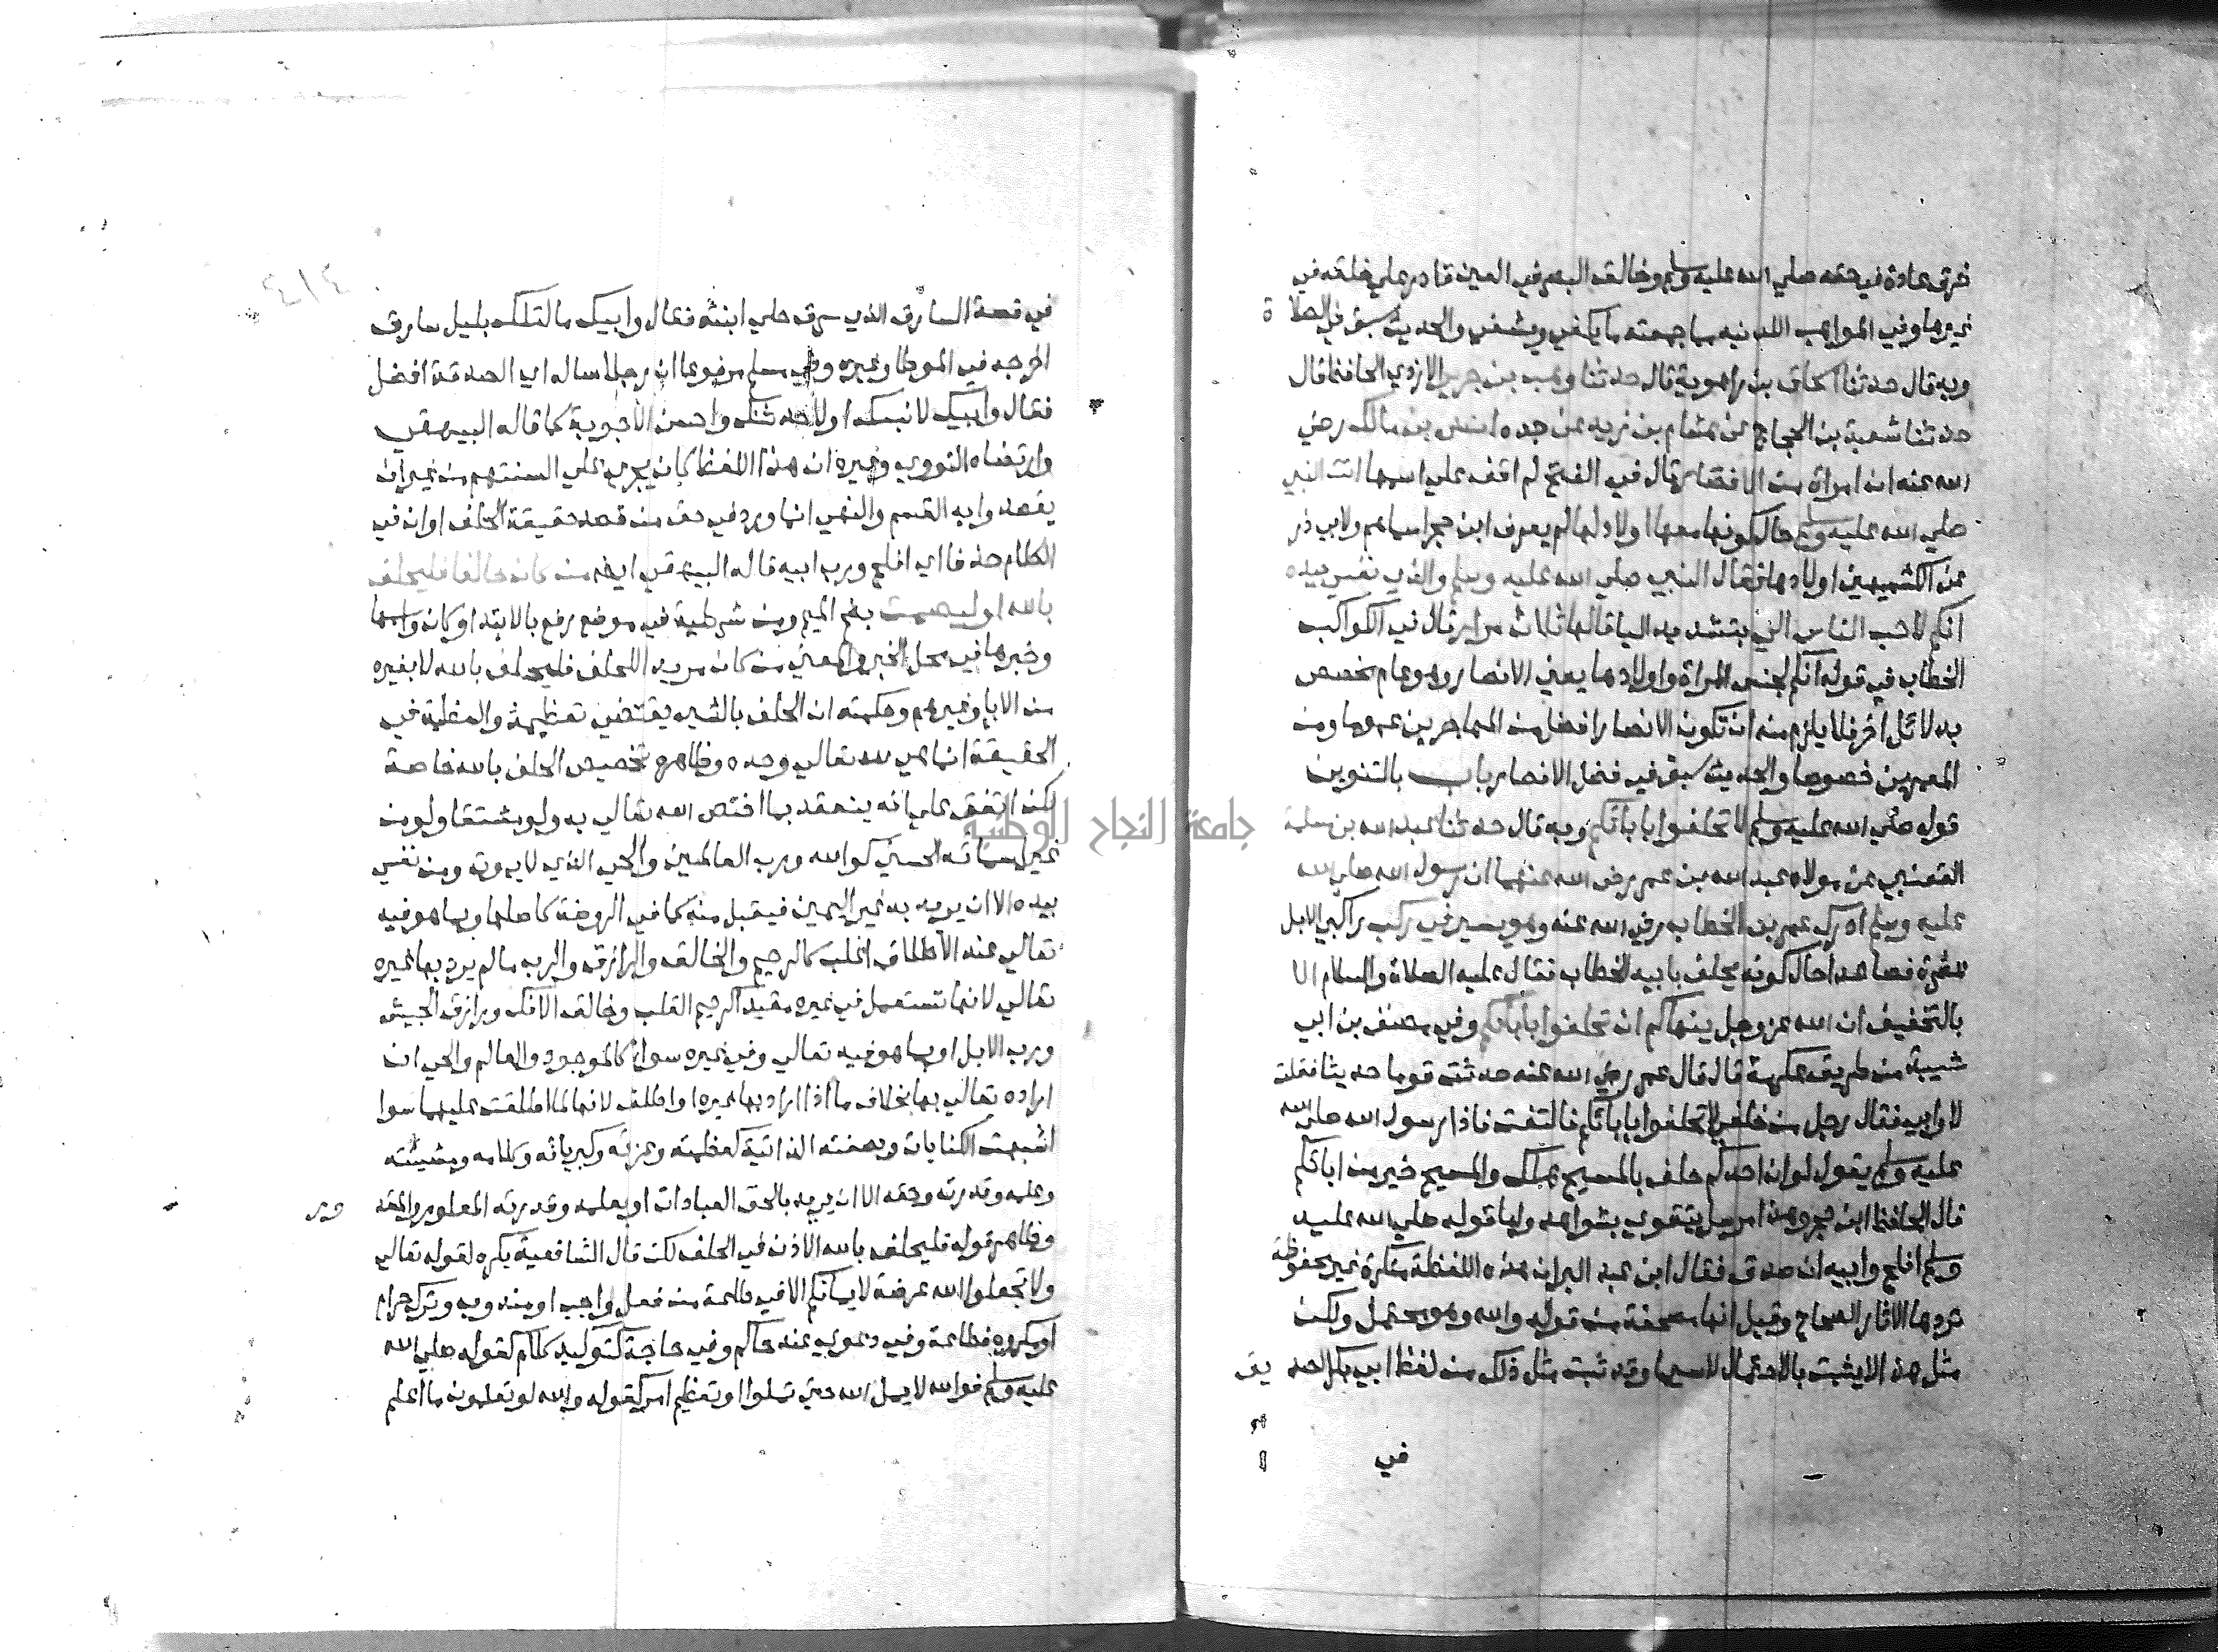 خرق عادة في حقه صلي الله عليه وسلم وخالق البصر في العين قادر علي خلقه في
غيرها وفي المواهب اللدنيه مباحثه ما يكفي ويشفي والحديث سبق في الصلاة
وبه قال حدثنا اسحاق بن راهوية قال حدثنا وهب بن جرير الازدي الحافظ قال
حدثنا شعبة بن الحجاج عن هشام بن زيد عن جده انس بن مالك رضي
الله عنه ان امراة من الانصار قال في الفتح لم اقف علي اسمها اتت النبي
صلي الله عليه وسلم حال كونها معها اولاد لها لم يعرف ابن حجر اسماهم ولابي ذر
عن الكشميهني اولادها فقال النبي صلي الله عليه وسلم والذي نفسي بيده
انكم لاحب الناس الي بتشديد اليا قالها ثلاث مرار قال في الكواكب
الخطاب في قوله انكم لجنس المراة واولادها يعني الانصار وهو عام مخصص
بدلائل اخر فلا يلزم منه ان تكون الانصار افضل من المهاجرين عموما ومن
العمرين خصوصا والحديث سبق في فضل الانصار باب بالتنوين
قوله صلي الله عليه وسلم لا تحلفوا بابائكم وبه قال حدثنا عبد الله بن مسلمة
القعنبي عن مولاه عبد الله بن عمر رضي الله عنهما ان رسول الله صلي الله
عليه وسلم ادرك عمر بن الخطاب رضي الله عنه وهو يسير في ركب راكبي الابل
عشرة فصاعدا حال كونه يحلف بابيه الخطاب فقال عليه الصلاة والسلام الا
بالتخفيف ان الله عز وجل ينهاكم ان تحلفوا بابائكم وفي مصنف بن ابي
شيبة من طريق عكرمة قال قال عمر رضي الله عنه حدثت قوما حديثا فقلت
لا وابي فقال رجل من خلفي لا تحلفوا بابائكم فالتفت فاذا رسول الله صلي الله
عليه وسلم يقول لو ان احدكم حلف بالمسيح هلك والمسيح خير من ابائكم
قال الحافظ ابن حجر وهذا مرسل يتقوي بشواهد واما قوله صلي الله عليه
وسلم افلح وابيه ان صدق فقال ابن عبد البر ان هذه اللفظة منكرة غير محفوظة
تردها الاثار الصحاح وقيل انها مصحفة من قوله والله وهو محتمل ولكن
مثل هذا لا يثبت بالاحتمال لاسيما وقد ثبت مثل ذلك من لفظ ابي بكر الصديق
في
في قصة السارق الذي سرق حلي ابنته فقال وابيك ما ليلك بليل سارق
اخرجه في الموطا وغيره وفي مسلم مرفوعا ان رجلا ساله اي الصدقة افضل
فقال وابيك لانبئك او لاحدثنك واحسن الاجوبة كما قاله البيهقي
وارتضاه النووي وغيره ان هذا اللفظ كان يجري علي السنتهم من غير ان
يقصدوا به القسم والنهي انما ورد في حق من قصد حقيقة الحلف او ان في
الكلام حذفا اي افلح ورب ابيه قاله البيهقي ايضا من كان حالفا فليحلف
بالله او ليصمت بضم الميم ومن شرطية في موضع رفع بالابتدا وكان واسمها
وخبرها في محل الخبر والمعني من كان مريدا للحلف فليحلف بالله لا بغيره
من الابا وغيرهم وحكمته ان الحلف بالشيء يقتضي تعظيمه والعظمة في
الحقيقة انما هي لله تعالي وحده وظاهره تخصيص الحلف بالله خاصة
لكن اتفق علي انه ينعقد بما اختص الله تعالي به ولو مشتقا ولو من
غير اسمائه الحسني كوالله ورب العالمين والحي الذي لا يموت ومن نفسي
بيده الا ان يريد به غير اليمين فيقبل منه كما في الروضة كاصلها وبما هو فيه
تعالي عند الاطلاق اغلب كالرحيم والخالق والرازق والرب ما لم يرد بها غيره
تعالي لانها تستعمل في غيره مقيدا كرحيم القلب وخالق الافك ورازق الجيش
ورب الابل او بما هو فيه تعالي وفي غيره سواء كالموجود والعالم والحي ان
اراده تعالي بها بخلاف ما اذا اراد بها غيره او اطلق لانها لما اطلقت عليهما سوا
اشبهت الكنايات وبصفته الذاتية كعظمته وعزته وكبريائه وكلامه ومشيئته
وعلمه وقدرته وحقه الا ان يريد بالحق العبادات او بعلمه وقدرته المعلوم والمقدور
وظاهر قوله فليحلف بالله الاذن في الحلف لكن قال الشافعية يكره لقوله تعالي
ولا تجعلوا الله عرضة لايمانكم الا في طاعة من فعل واجب او مندوب وترك حرام
او مكروه فطاعة وفي دعوي عند حاكم وفي حاجة كتوكيد كلام كقوله صلي الله
عليه وسلم فوالله لا يمل الله حتي تملوا او تعظيم امر كقوله والله لو تعلمون ما اعلم
جامعة النجاح الوطنية